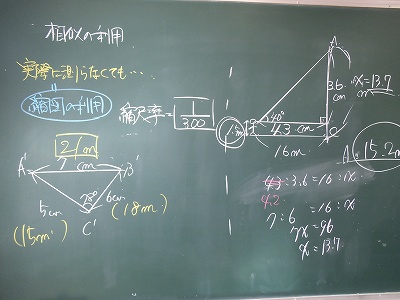 相似の利用
実際に測らなくても…
縮図の利用
縮尺率=1/300
21m
7cm
A'
B'
C'
5cm
6cm
78°
(15m)
(18m)
A
3.6
cm
x=13.7
cm
40°
4.3 cm
C
16m
A. 15.2m
4.3:3.6=16:x
4.2
7:6=16:x
7x=96
x=13.7